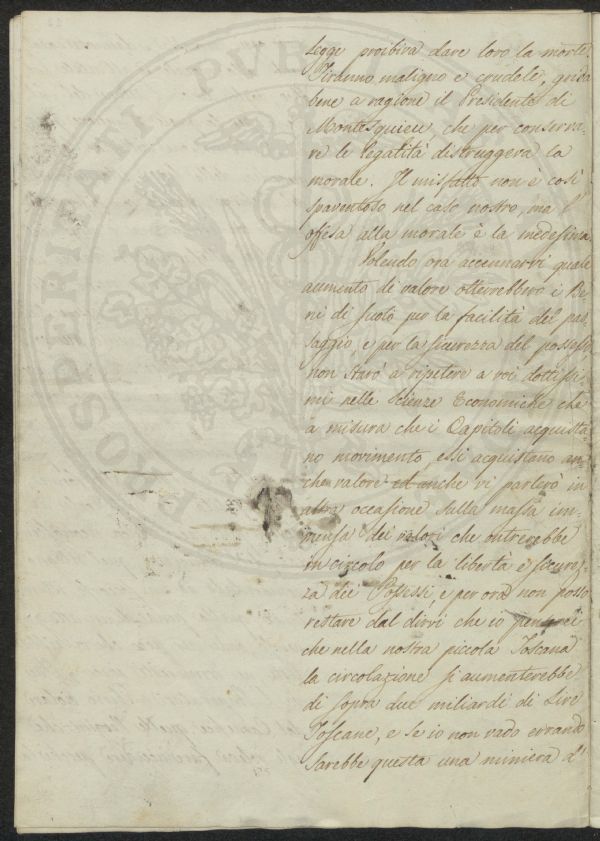 Legge proibiva dare loro la morte.
Tiranno maligno e crudele, grida
bene a ragione il Presidente di
Montesquieu, che per conserva-
re le legalità distruggeva la
morale. Il misfatto non è così
spaventoso nel caso nostro, ma l'
offesa alla morale è la medesima.
Volendo ora accennarvi quale
aumento di valore otterrebbero i Be-
ni di suolo per la facilità del pas-
saggio, e per la sicurezza del possesso
non starò a ripetere a voi dottissi-
mi nelle Scienze Economiche che
a misura che i Capitoli acquista-
no movimento essi acquistano an-
che valore ed anche vi parlerò in
altra occasione sulla massa im-
mensa dei valori che entrerebbe
in circolo per la libertà e sicurez-
za dei Possessi, e per ora non posso
restare dal dirvi che io penserei
che nella nostra piccola Toscana
la circolazione si aumenterebbe
di sopra due miliardi di Lire
Toscane, e se io non vado errando
sarebbe questa una miniera d'
PROSPERITATI PVB